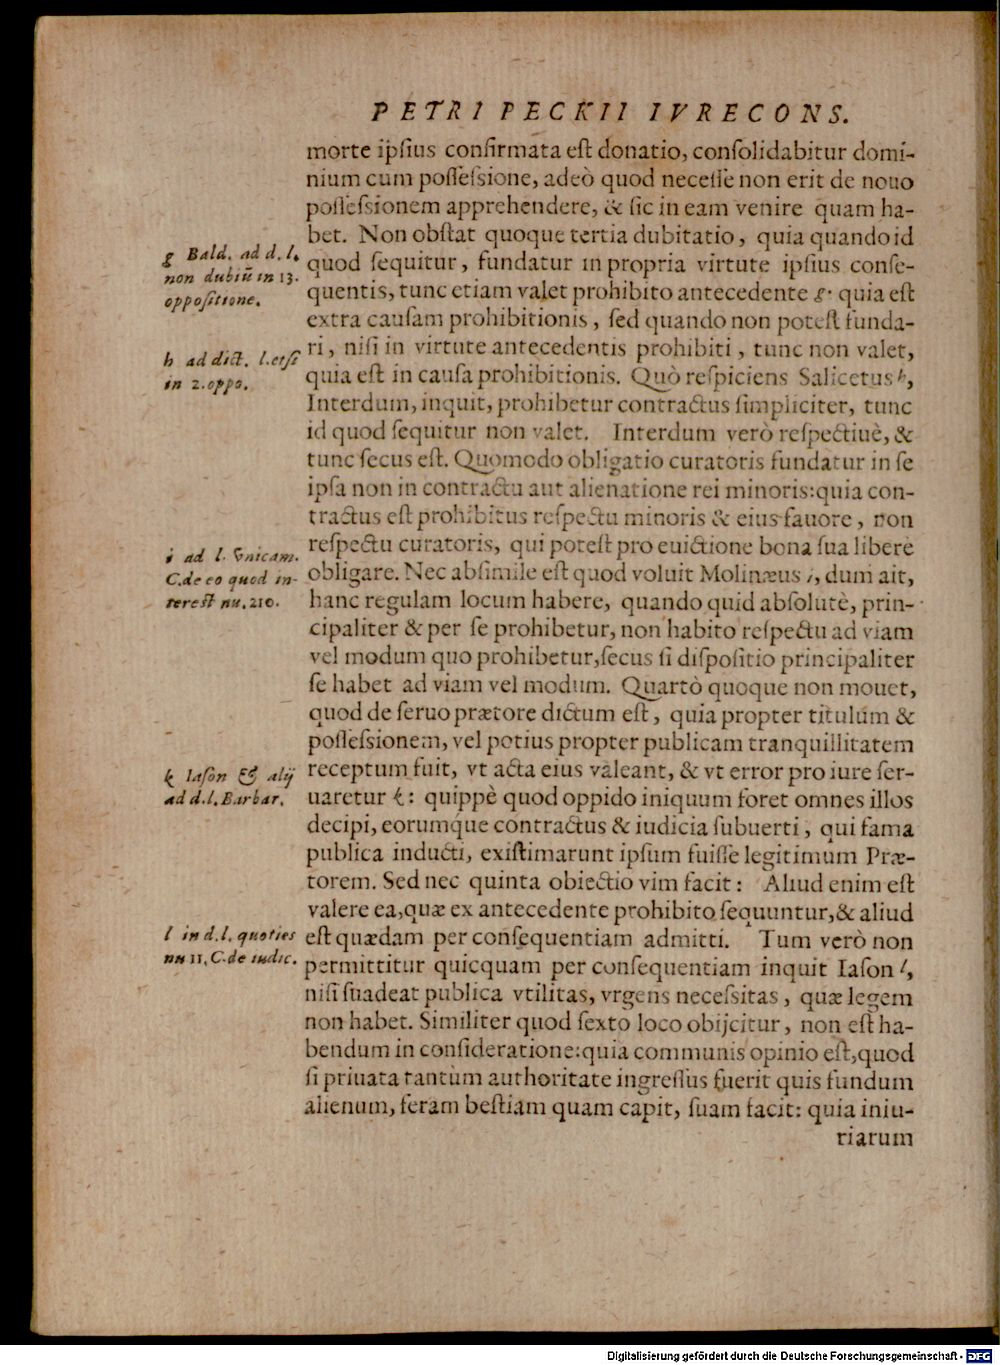 PETRI PECKII IVRECONS.
morte ipſius confirmata eſt donatio, conſolidabitur domi-
nium cum poſſeſsione, adeò quod neceſſe non erit de nouo
poſſeſsionem apprehendere, & ſic in eam venire quam ha-
bet. Non obſtat quoque tertia dubitatio, quia quando id
quod ſequitur, fundatur in propria virtute ipſius conſe-
quentis, tunc etiam valet prohibito antecedente g. quia eſt
extra cauſam prohibitionis, ſed quando non poteſt funda-
ri, niſi in virtute antecedentis prohibiti, tunc non valet,
quia eſt in cauſa prohibitionis. Quò reſpiciens Salicetus h,
Interdum, inquit, prohibetur contractus ſimpliciter, tunc
id quod ſequitur non valet. Interdum verò reſpectiuè, &
tunc ſecus eſt. Quomodo obligatio curatoris fundatur in ſe
ipſa non in contractu aut alienatione rei minoris: quia con-
tractus eſt prohibitus reſpectu minoris & eius fauore, non
reſpectu curatoris, qui poteſt pro euictione bona ſua liberè
obligare. Nec abſimile eſt quod voluit Molinæus i, dum ait,
hanc regulam locum habere, quando quid abſolutè, prin-
cipaliter & per ſe prohibetur, non habito reſpectu ad viam
vel modum quo prohibetur, ſecus ſi diſpoſitio principaliter
ſe habet ad viam vel modum. Quartò quoque non mouet,
quod de ſeruo prætore dictum eſt, quia propter titulum &
poſſeſsionem, vel potius propter publicam tranquillitatem
receptum fuit, vt acta eius valeant, & vt error pro iure ſer-
uaretur k: quippè quod oppido iniquum foret omnes illos
decipi, eorumque contractus & iudicia ſubuerti, qui fama
publica inducti, exiſtimarunt ipſum fuiſſe legitimum Præ-
torem. Sed nec quinta obiectio vim facit: Aliud enim eſt
valere ea, quæ ex antecedente prohibito ſequuntur, & aliud
eſt quædam per conſequentiam admitti. Tum verò non
permittitur quicquam per conſequentiam inquit Iaſon l,
niſi ſuadeat publica vtilitas, vrgens neceſsitas, quæ legem
non habet. Similiter quod ſexto loco obijcitur, non eſt ha-
bendum in conſideratione: quia communis opinio eſt, quod
ſi priuata tantùm authoritate ingreſſus fuerit quis fundum
alienum, feram beſtiam quam capit, ſuam facit: quia iniu-
riarum
g Bald. ad d. l.
non dubiū in 13.
oppoſitione.
h ad dict. l. etſi
in 2. oppo.
i ad l. vnicam.
C. de eo quod in-
tereſt nu. 210.
k Iaſon & alij
ad d. l. Barbar.
l in d. l. quoties
nu 11. C. de iudic.
Digitalisierung gefördert durch die Deutsche Forschungsgemeinschaft - DFG